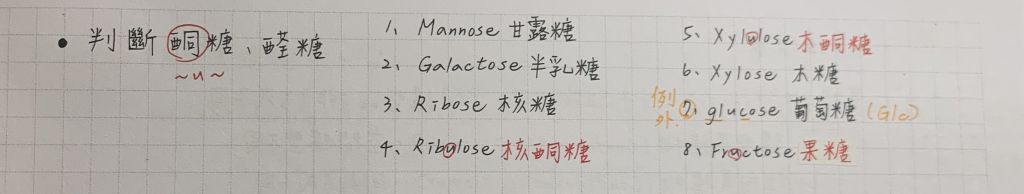 • 判斷酮糖、醛糖
~u~
1、Mannose 甘露糖
2、Galactose 半乳糖
3、Ribose 核糖
4、Ribulose 核酮糖
5、Xylulose 木酮糖
6、Xylose 木糖
例外?
7、glucose 葡萄糖 (Glc)
8、Fructose 果糖